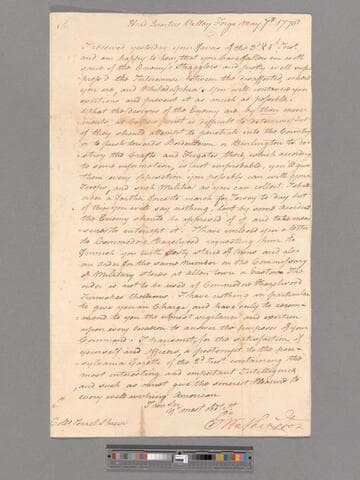 Head Quarters Valley Forge May 7th 1778
I received yesterday your favors of the 3d & 5th Inst.
and am happy to hear, that you have fallen in with
some of the Enemy's Stragglers and pretty well sup
pressed the Intercourse between the disaffected where
you are, and Philadelphia. You will continue your
exertions and prevent it as much as possible.
What the designs of the Enemy are by their move
ments at Coopers point is difficult to determine, but
if they should attempt to penetrate into the Country
or to push towards Bordentown or Burlington to de
stroy the Crafts and Frigates there, which according
to some information, is not improbable, you'll give
them every opposition you possibly can with your
Troops, and such Militia as you can collect.
of this you will say nothing, lest by some accident
the Enemy should be apprised of it and take mea
sures to interrupt it. I have inclosed you a letter
to Commodore Hazelwood requesting him to
furnish you with Sixty stand of Arms and also
an order for the same number on the Commissary
of Military stores at Allen town or Easton. The
order is not to be used if Commodore Hazelwood
furnishes the Arms. I have nothing in particular
to give you in Charge, and have only to recom
mend to you the utmost vigilance and exertion
upon every occasion to answer the purposes of your
Command. I transmit, for the satisfaction of
yourself and officers, a postscript to the penn
sylvania Gazette of the 2d Inst. containing the
most interesting and important Intelligence,
and such as must give the sincerest pleasure to
every well wishing American
I am Sir
Yr most obt St
Go Washington
Colo. Israel Shreve